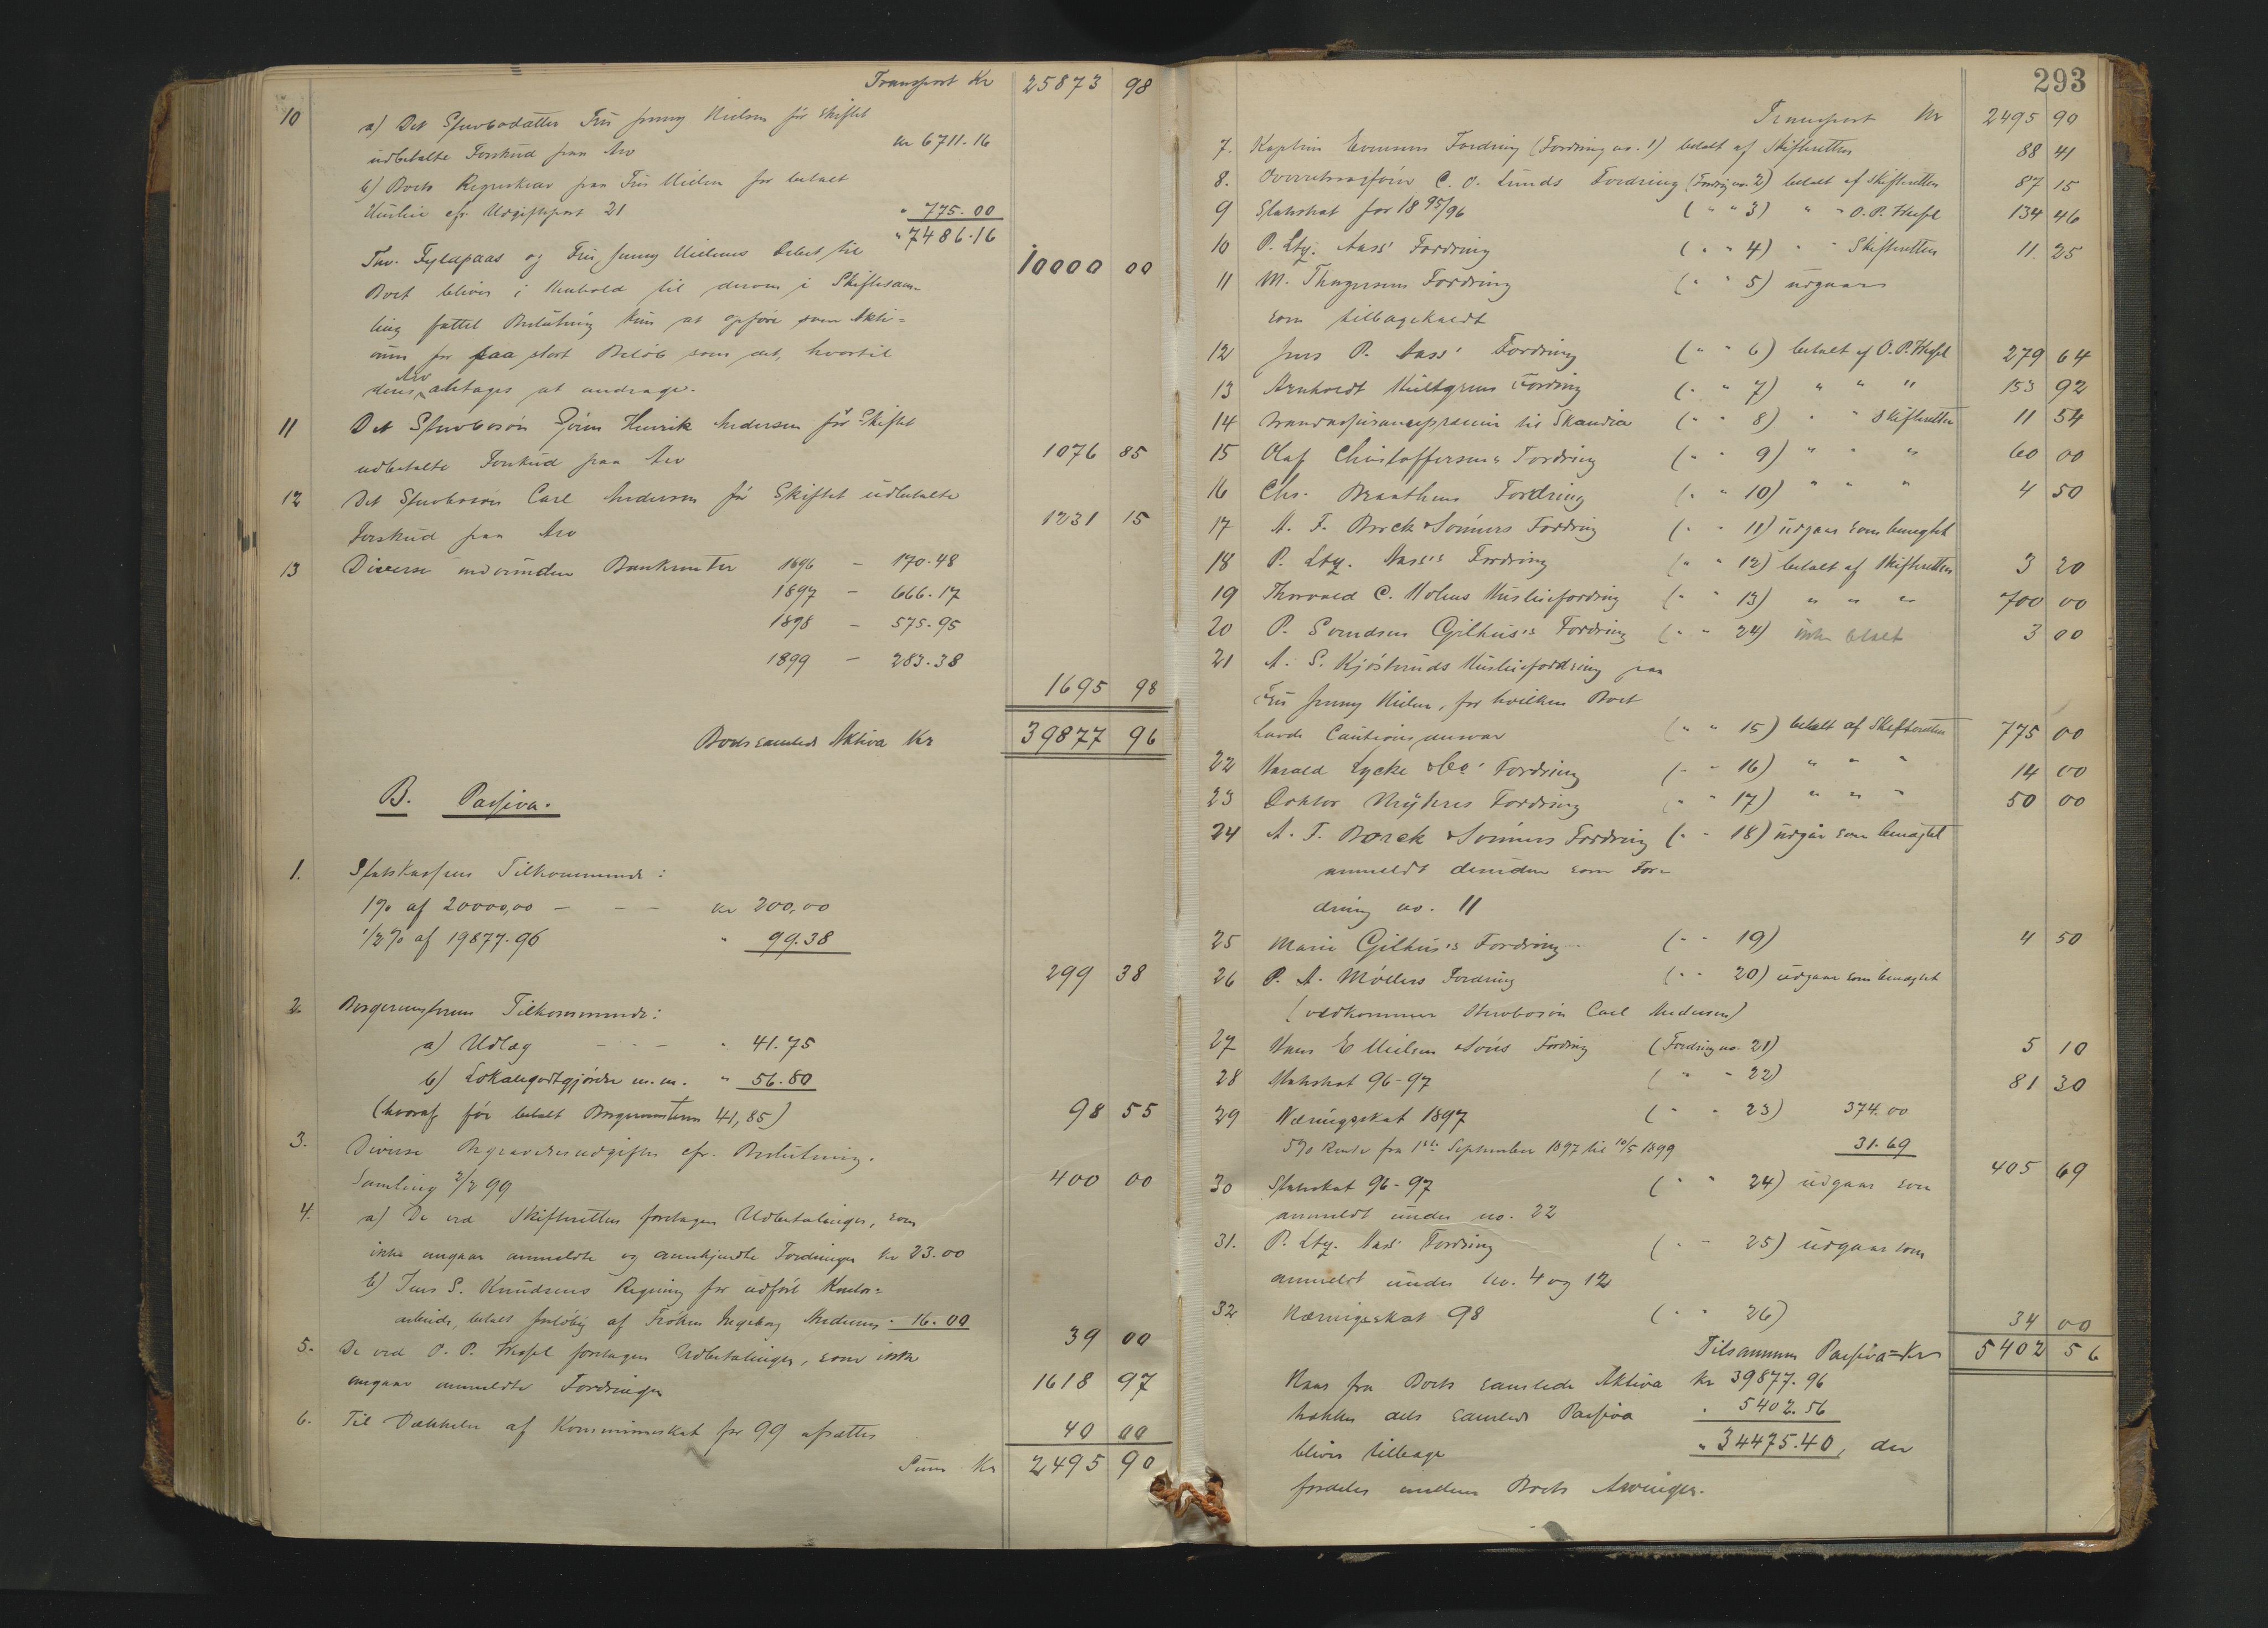 Transport Kr 25873 98
10 a) Det Stervbodatter Fru Jenny Nielsen før Skiftet
udbetalte Forskud paa Arv kr 6711.16
b) Boets Regreskrav paa Fru Nielsen for betalt
Husleie cfr. Udgiftspost 21 " 775.00
" 7486.16
Tho. Fyldpaas og Fru Jenny Nielsens Debet til
Boet bliver i Henhold til derom i Skiftesam- 10000 00
ling fattet Beslutning kun at opføre som Akti-
vum for saa stort Beløb som det, hvortil
deres Arv antages at andrage.
11 Det Stervbosøn Jørn Henrik Andersen før Skiftet
udbetalte Forskud paa Arv 1076 85
12 Det Stervbosøn Carl Andersen før Skiftet udbetalte
Forskud paa Arv 1231 15
13 Diverse indvundne Bankrenter 1896 – 170.48
1897 – 666.17
1898 – 575.95
1899 – 283.38
1695 98
Boets samlede Aktiva Kr 39877 96
B. Passiva.
1. Statskassens Tilkommende:
1% af 20000,00 – – – kr 200,00
1/2% af 19877.96 " 99.38
299 38
2. Borgermesterens Tilkommende:
a) Udlæg – – – " 41.75
b) Lokalegodtgjørelse m.m. " 56.80
(hvoraf før betalt Borgermesteren 41,85) 98 55
3. Diverse Begravelsesudgifter cfr. Beslutning.
Samling 2/2 99 400 00
4. a) De ved Skifteretten foretagne Udbetalinger, som
ikke angaar anmeldte og anerkjendte Fordringer kr 23.00
b) Jens S. Knudsens Regning for udført Kontor-
arbeide, betalt foreløbig af Frøken Ingeborg Andersen " 16.00
39 00
5. De ved O. P. Hessel foretagne Udbetalinger, som ikke
angaar anmeldte Fordringer 1618 97
6. Til Dækkelse af Kommuneskat for 99 afsættes 40 00
Sum Kr 2495 90
293
Transport Kr 2495 90
7. Kaptein Evensens Fordring (Fordring no. 1) betalt af Skifteretten 88 41
8. Overretssagfører C. O. Lunds Fordring (Fordring no. 2) betalt af Skifteretten 87 15
9 Statsskat for 1895/96 ( " " 3) " " O. P. Hessel 134 46
10 P. Ltz. Aass' Fordring ( " " 4) " " Skifteretten 11 25
11 M. Thygesens Fordring ( " " 5) udgaar
som tilbagekaldt
12 Jens P. Aass' Fordring ( " " 6) betalt af O. P. Hessel 279 64
13 Arnholdt Hultgrens Fordring ( " " 7) " " " 153 92
14 Brandassurancepræmie til Skandia ( " " 8) " " Skifteretten 11 54
15 Olaf Christoffersens Fordring ( " " 9) " " " 60 00
16 Chr. Braathens Fordring ( " " 10) " " " 4 50
17 A. F. Borck & Sønners Fordring ( " " 11) udgaar som benægtet
18 P. Ltz. Aass's Fordring ( " " 12) betalt af Skifteretten 3 20
19 Thorvald C. Holms Husleiefordring ( " " 13) " " " 700 00
20 P. Svendsen Gilhus's Fordring ( " " 24) ikke betalt 3 00
21 A. S. Kjøstvinds Husleiefordring paa
Fru Jenny Nielsen, for hvilken Boet
havde Cautionsansvar ( " " 15) betalt af Skifteretten 775 00
22 Harald Lycke & Co' Fordring ( " " 16) " " " 14 00
23 Doktor Myhres Fordring ( " " 17) " " " 50 00
24 A. F. Borck & Sønners Fordring ( " " 18) udgår som benægtet
anmeldt desuden som For-
dring no. 11
25 Marie Gilhus's Fordring ( " " 19) 4 50
26 P. A. Møllers Fordring ( " " 20) udgaar som benægtet
(vedkommer Stervbosøn Carl Andersen)
27 Hans E Nielsen & Søns Fordring (Fordring no. 21) 5 10
28 Statsskat 96-97 ( " " 22) 81 30
29 Næringsskat 1897 ( " " 23) 374.00
5% Rente fra 1ste September 1897 til 10/5 1899 31.69
405 69
30 Statsskat 96-97 ( " " 24) udgaar som
anmeldt under no. 22
31. P. Ltz. Aass' Fordring ( " " 25) udgaar som
anmeldt under no. 4 og 12
32 Næringsskat 98 ( " " 26) 34 00
Tilsammen Passiva = Kr 5402 56
Naar fra Boets samlede Aktiva kr 39877.96
trækkes dets samlede Passiva " 5402.56
bliver tilbage " 34475.40, der
fordeles mellem Boets Arvinger.